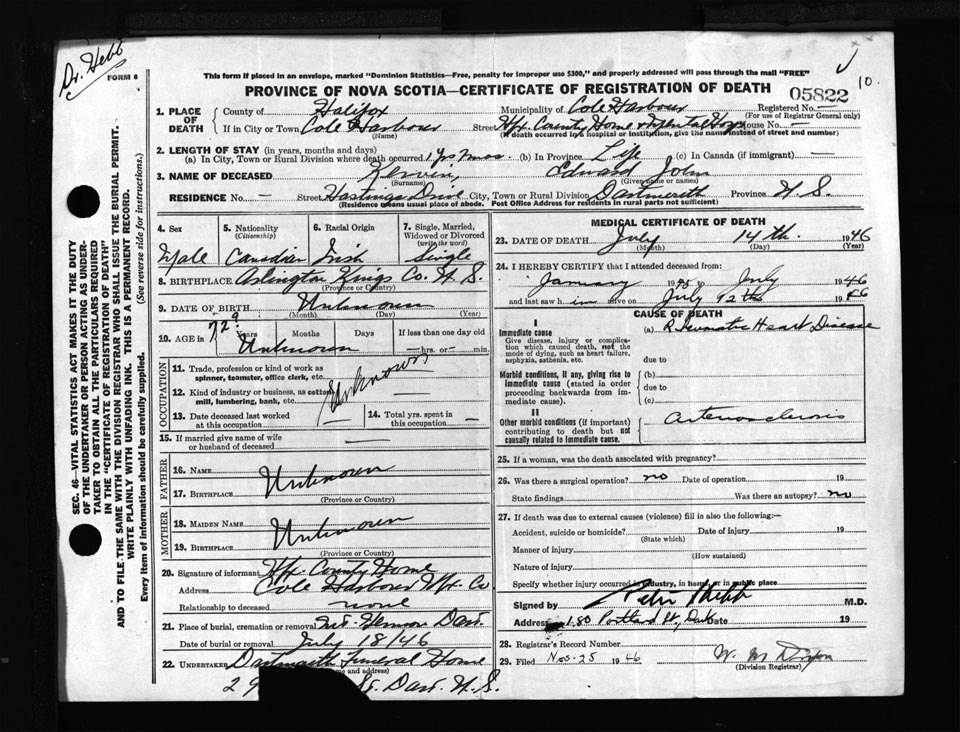 Dr. Hebb
FORM 6
10.
This form if placed in an envelope, marked "Dominion Statistics—Free, penalty for improper use $300," and properly addressed will pass through the mail "FREE"
PROVINCE OF NOVA SCOTIA—CERTIFICATE OF REGISTRATION OF DEATH 05822
SEC. 46—VITAL STATISTICS ACT MAKES IT THE DUTY
OF THE UNDERTAKER OR PERSON ACTING AS UNDER-
TAKER TO OBTAIN ALL THE PARTICULARS REQUIRED
IN THE "CERTIFICATE OF REGISTRATION OF DEATH"
AND TO FILE THE SAME WITH THE DIVISION REGISTRAR WHO SHALL ISSUE THE BURIAL PERMIT.
WRITE PLAINLY WITH UNFADING INK. THIS IS A PERMANENT RECORD.
Every item of information should be carefully supplied. (See reverse side for instructions.)
1. PLACE OF DEATH County of Halifax Municipality of Cole Harbour Registered No. —
(For use of Registrar General only)
If in City or Town Cole Harbour Street Hfx. County Home & Mental Hosp House No. —
(Name) (If death occurred in a hospital or institution, give the name instead of street and number)
2. LENGTH OF STAY (in years, months and days)
(a) In City, Town or Rural Division where death occurred 1 yr 7 mos. (b) In Province Life (c) In Canada (if immigrant) —
3. NAME OF DECEASED Kervin, Edward John
(Surname) (Given name or names)
RESIDENCE No. — Street Hastings Drive City, Town or Rural Division Dartmouth Province N. S.
(Residence means usual place of abode. Post Office Address for residents in rural parts not sufficient)
4. Sex 5. Nationality (Citizenship) 6. Racial Origin 7. Single, Married, Widowed or Divorced (write the word)
Male Canadian Irish Single
8. BIRTHPLACE Arlington Kings Co. N. S.
(Province or Country)
9. DATE OF BIRTH Unknown
(Month) (Day) (Year)
10. AGE in 72? Years Months Days If less than one day old
Unknown — hrs. or — min.
OCCUPATION
11. Trade, profession or kind of work as
spinner, teamster, office clerk, etc.
Unknown
12. Kind of industry or business, as cotton
mill, lumbering, bank, etc.
13. Date deceased last worked
at this occupation
14. Total yrs. spent in
this occupation —
15. If married give name of wife
or husband of deceased —
FATHER
16. NAME
Unknown
17. BIRTHPLACE
(Province or Country)
MOTHER
18. MAIDEN NAME
Unknown
19. BIRTHPLACE
(Province or Country)
20. Signature of informant Hfx. County Home
Address Cole Harbour Hfx. Co
Relationship to deceased none
21. Place of burial, cremation or removal Mt. Hermon Dart.
Date of burial or removal July 18/46
22. UNDERTAKER Dartmouth Funeral Home
and address)
29 St. Dart. N. S.
MEDICAL CERTIFICATE OF DEATH
23. DATE OF DEATH July 14th. 1946
(Month) (Day) (Year)
24. I HEREBY CERTIFY that I attended deceased from:
January 1945 to July 1946
and last saw him alive on July 12th 1946
CAUSE OF DEATH
I
Immediate cause (a) Rheumatic Heart Disease
Give disease, injury or complica-
tion which caused death, not the
mode of dying, such as heart failure,
asphyxia, asthenia, etc.
due to
Morbid conditions, if any, giving rise to
immediate cause (stated in order
proceeding backwards from im-
mediate cause).
(b)
due to
(c)
II
Other morbid conditions (if important)
contributing to death but not
causally related to immediate cause.
Arteriosclerosis
25. If a woman, was the death associated with pregnancy?
26. Was there a surgical operation? no Date of operation 19
State findings Was there an autopsy? no
27. If death was due to external causes (violence) fill in also the following:—
Accident, suicide or homicide? Date of injury 19
(State which)
Manner of injury
(How sustained)
Nature of injury
Specify whether injury occurred in industry, in home, or in public place
Signed by M.D.
Address 180 Portland St., Dart Date 19
28. Registrar's Record Number
29. Filed Nov. 25 1946
(Division Registrar)